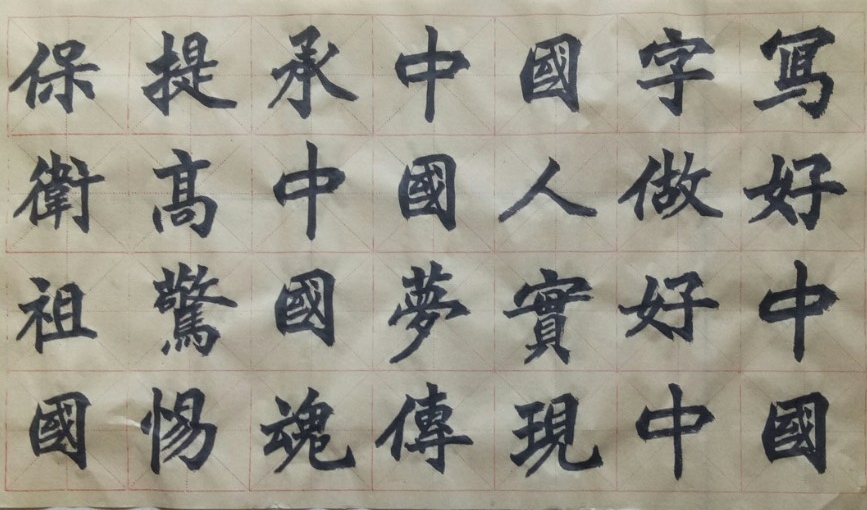 寫好中國
字做好中
國人實現
中國夢傳
承中國魂
提高驚惕
保衛祖國